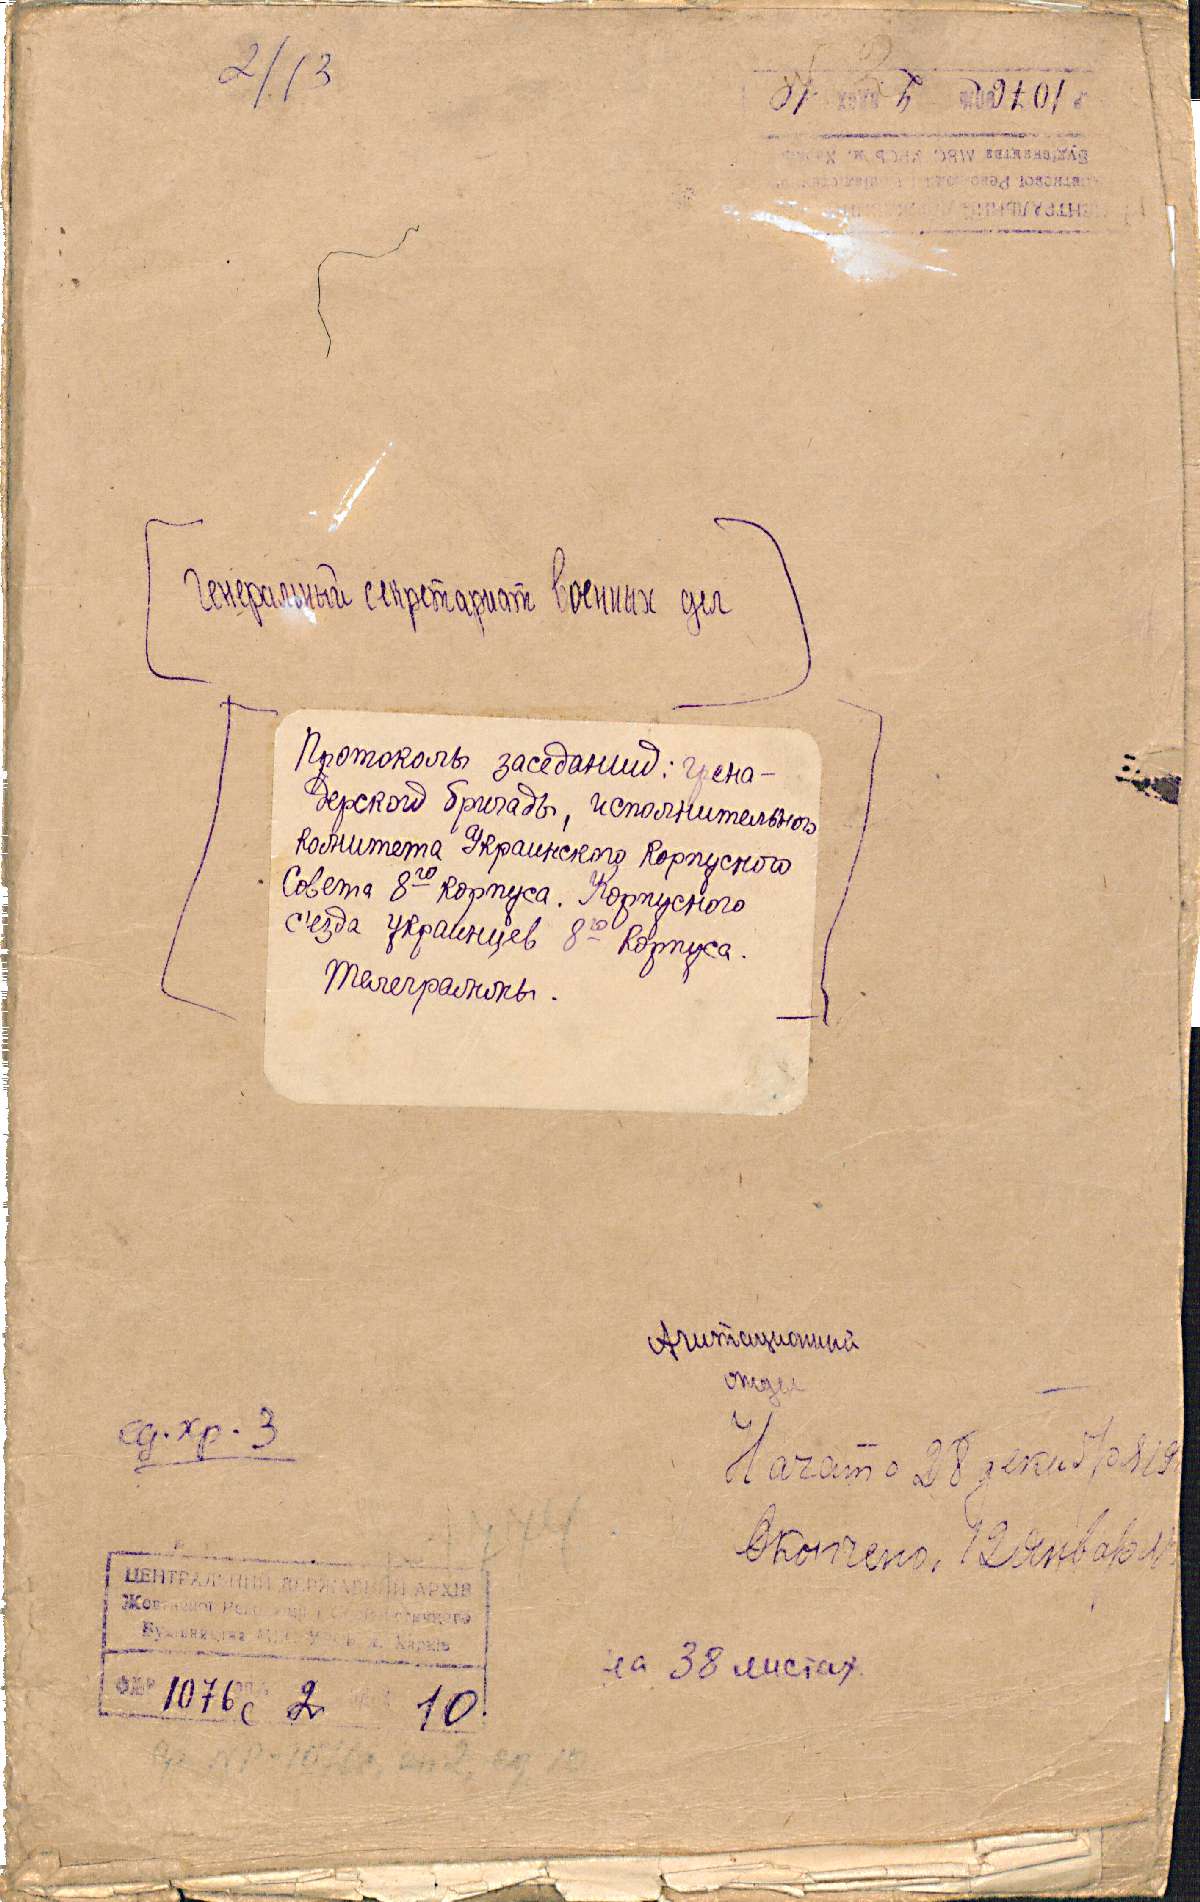 2/13
Генеральный секретариат военных дел
Протоколы заседаний: грена-
дерской бригады, исполнительного
комитета Украинского Корпусного
Совета 8го корпуса. Корпусного
с'езда украинцев 8го корпуса.
Телеграммы.
Агитационный
отдел
ед. хр. 3
Начато 28 декабря 19
Окончено, 12 января
ЦЕНТРАЛЬНИЙ ДЕРЖАВНИЙ АРХІВ
Жовтневої Революції і Соціалістичного
Будівництва УРСР м. Харків
ФОНД 1076с 2 10
на 38 листах
ф. №Р-1076с, оп2, ед 10